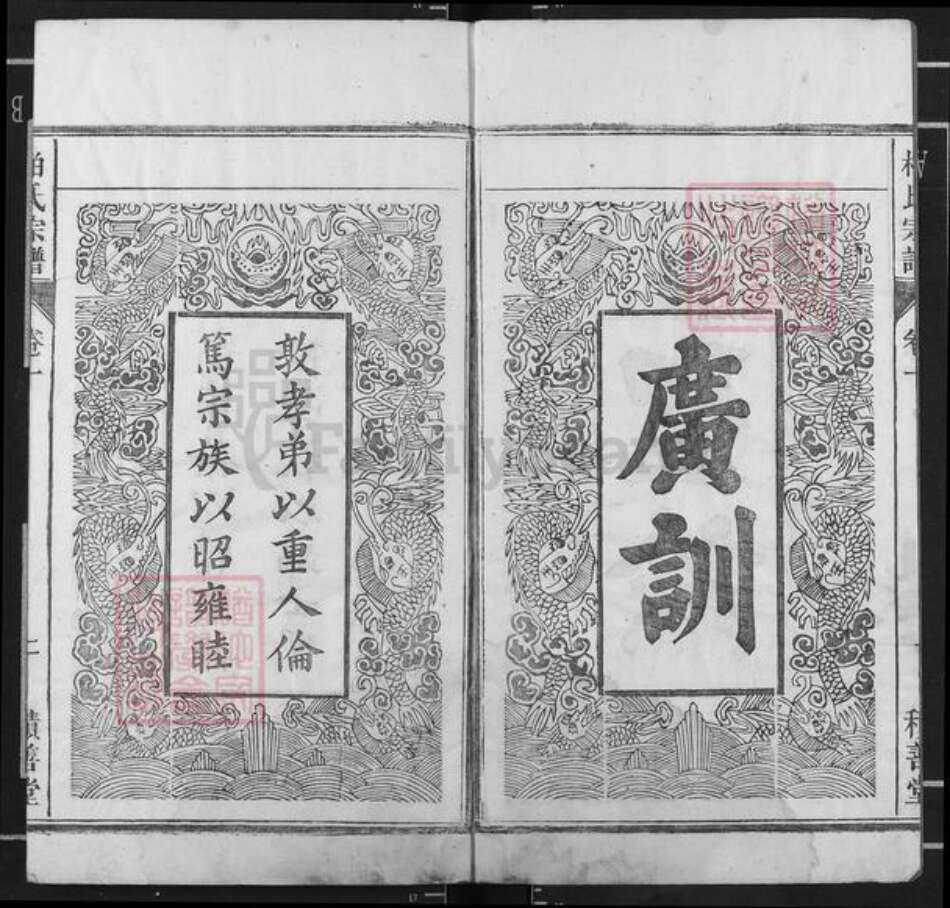 廣訓
敦孝弟以重人倫
篤宗族以昭雍睦
柏氏宗譜
卷一
積善堂
柏氏宗譜
卷一
積善堂
B
A